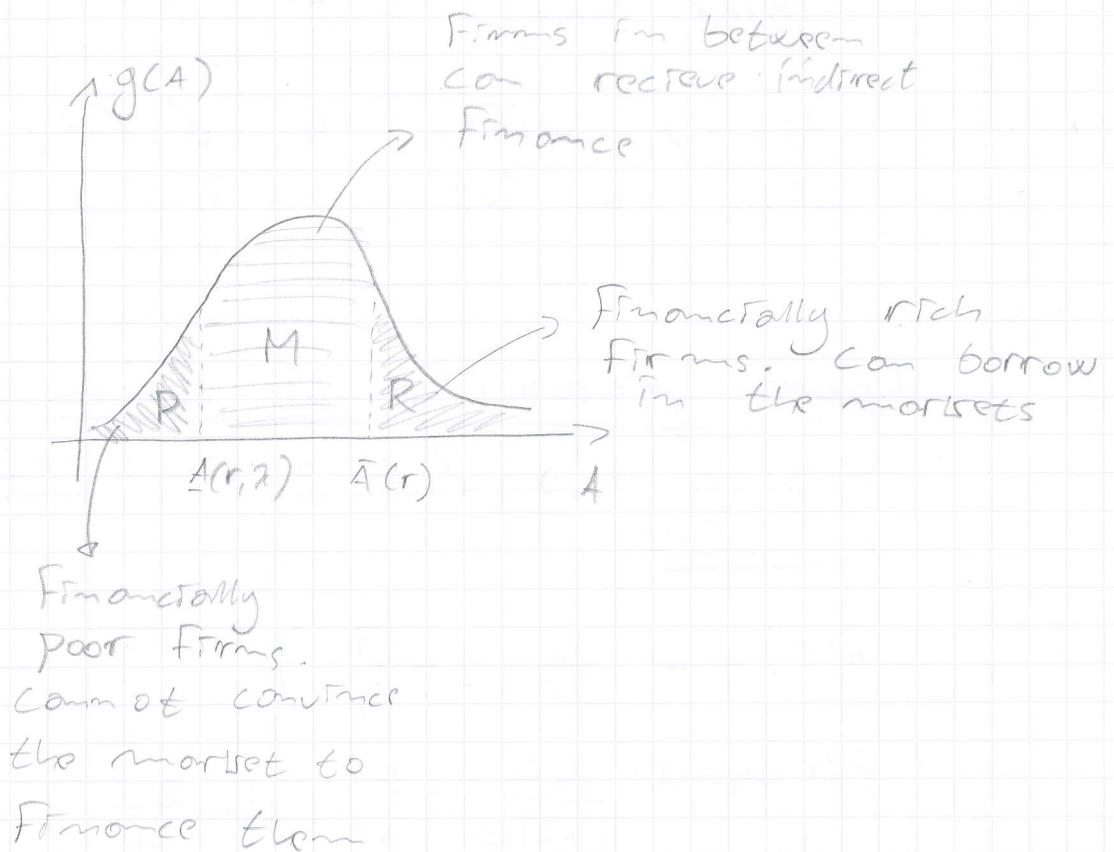 Firms in between
can recieve indirect
finance
g(A)
Financially rich
firms. Can borrow
in the markets
M
P
R
A̲(r,λ) Ā(r) A
Financially
poor firms.
Cannot convince
the market to
finance them